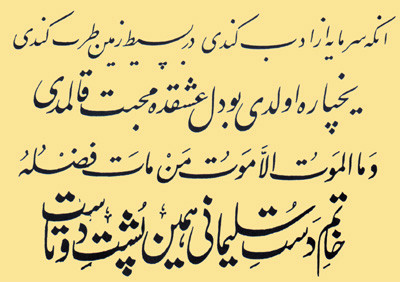 انکه سرمایه از ادب کندی در بسیط زمین طرب کندی
یخپاره اولدی بو دل عشقده محبت قالمدی
وَما الموَتُ الاَّ موَتُ مَنْ ماتَ فضْلُهُ
خاتمِ دَستِ سُلیمانی همین پُشتِ دوتاست